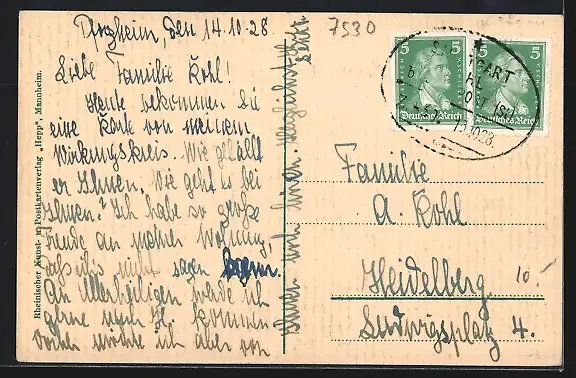 Pforzheim, den 14.10.28
7530
Liebe Familie Kohl!
Heute bekommen Sie
eine Karte von meinem
Wirkungskreis. Wie gefällt
er Ihnen. Wie geht es bei
Ihnen? Ich habe so große
Freude an meiner Wohnung,
daß ichs nicht sagen kann.
An Allerheiligen werde ich
gerne nach H. kommen
vorher möchte ich aber von
Ihnen noch hören. Herzlichst
Rheinischer Kunst- u. Postkartenverlag „Hepp", Mannheim.
5 5
Deutsches Reich
5 5
Deutsches Reich
STUTTGART
KEHL
15.10.28.
Familie
A. Kohl
Heidelberg
Ludwigsplatz 4.
10.-